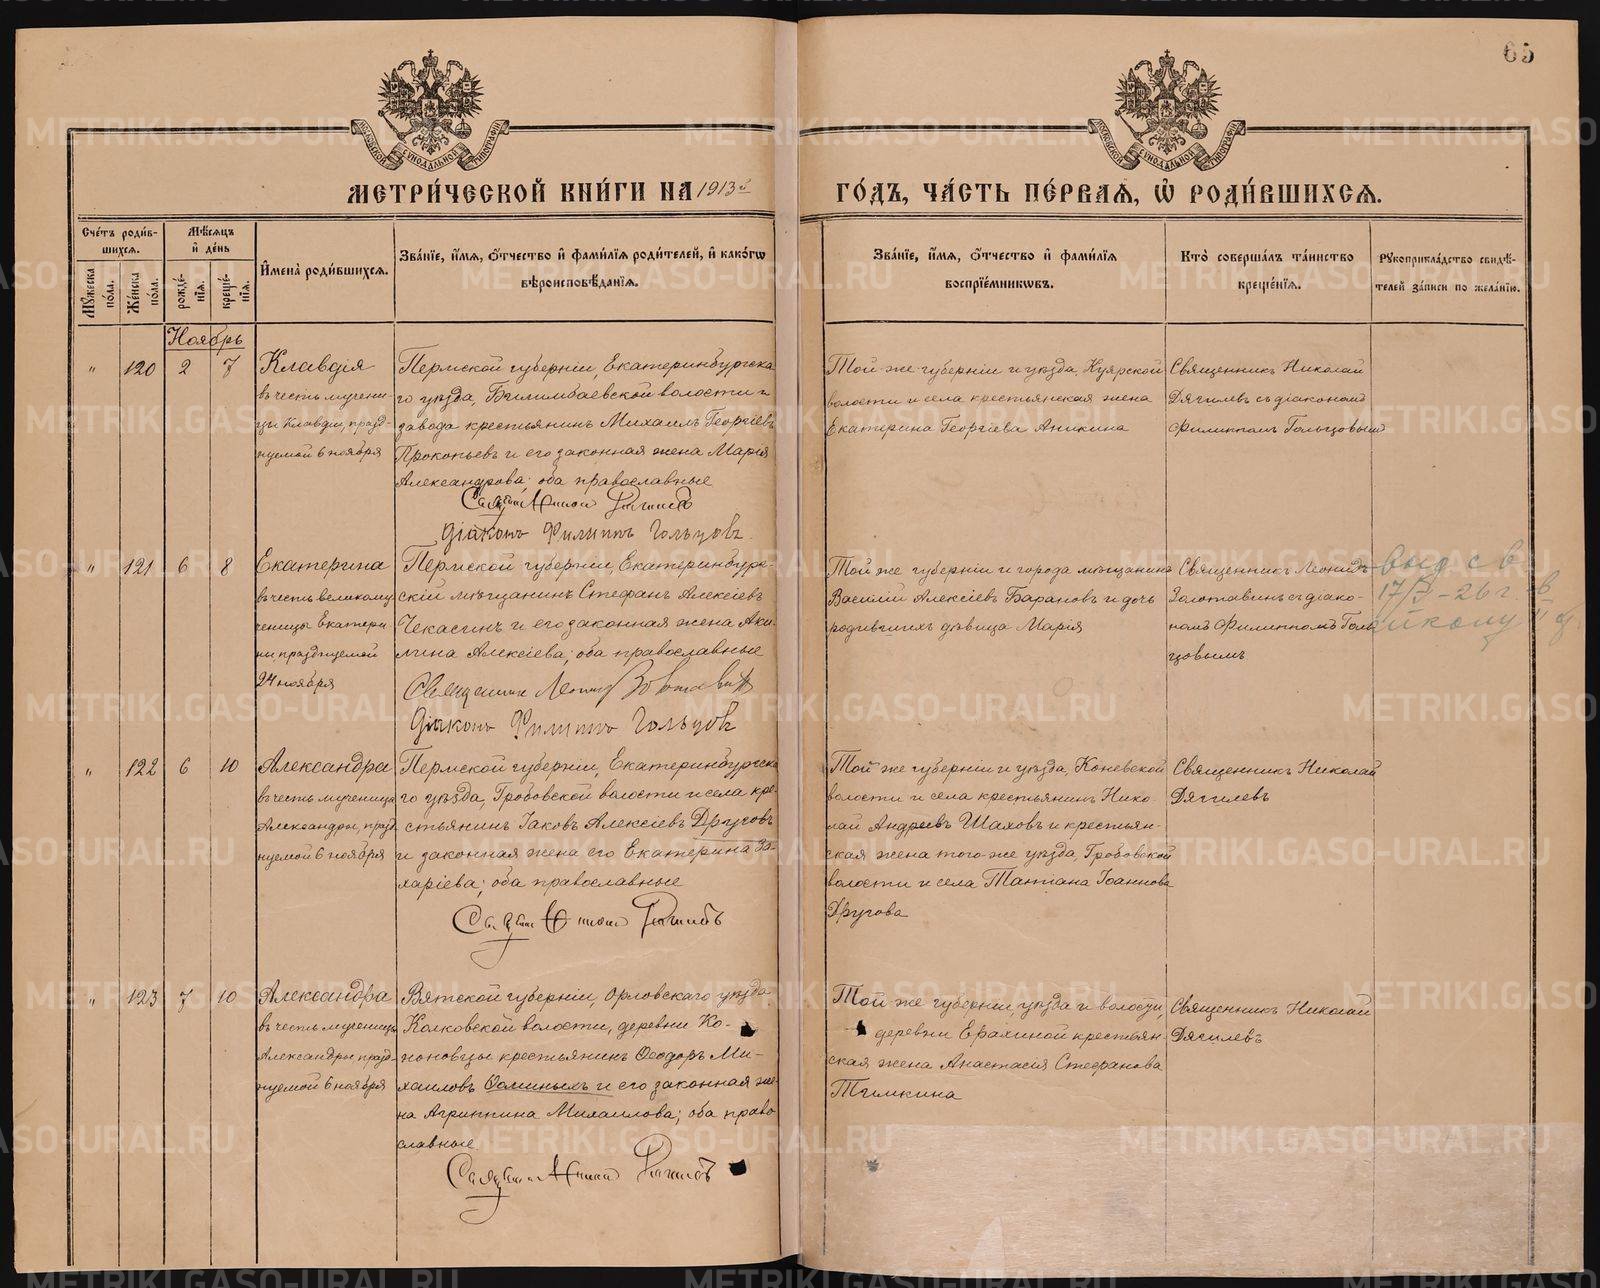 65
МЕТРИ́ЧЕСКОЙ КНИ́ГИ НА 1913й
ГО́ДЪ, ЧА́СТЬ ПЕ́РВАѦ, Ѡ РОДИ́ВШИХСѦ.
МОСКОВСКОЙ СѴНОДАЛЬНОЙ ТИПОГРАФІИ
МОСКОВСКОЙ СѴНОДАЛЬНОЙ ТИПОГРАФІИ
Сче́тъ роди́в-
шихсѧ.
Мꙋ́жеска по́ла.
Же́нска по́ла.
Мѣ́сѧцъ
и҆ де́нь
рожде́-
нїѧ.
креще́-
нїѧ.
И҆мена̀ роди́вшихсѧ.
Зва́нїе, и҆́мѧ, ѻ҆́тчество и҆ фами́лїѧ роди́телей, и҆ како́гѡ
вѣроисповѣ́данїѧ.
Зва́нїе, и҆́мѧ, ѻ҆́тчество и҆ фами́лїѧ
воспрїе́мникѡвъ.
Кто̀ соверша́лъ та́инство
креще́нїѧ.
Рꙋкоприкла́дство свидѣ́-
телей за́писи по жела́нїю.
Ноябрь
" 120 2 7
Клавдія
въ честь мучени-
цы Клавдіи, празд-
нуемой 6 ноября
Пермской губерніи, Екатеринбургска
го уѣзда, Билимбаевской волости и
завода крестьянинъ Михаилъ Георгіевъ
Прокопьевъ и его законная жена Марія
Александрова; оба православные
Діаконъ Филиппъ Гольцовъ.
Той-же губерніи и уѣзда, Куярской
волости и села крестьянская жена
Екатерина Георгіева Аникина
Священникъ Николай
Дягилевъ съ діакономъ
Филиппомъ Гольцовымъ
" 121 6 8
Екатерина
въ честь великому
ченицы Екатери
ны, празднуемой
24 ноября
Пермской губерніи, Екатеринбург-
скій мѣщанинъ Стефанъ Алексіевъ
Чекасинъ и его законная жена Аки-
лина Алексіева; оба православные
Священникъ Леонидъ Золотавинъ
Діаконъ Филиппъ Гольцовъ
Той же губерніи и города мѣщанинъ
Василій Алексіевъ Барановъ и дочь
родившихъ дѣвица Марія
Священникъ Леонидъ
Золотавинъ съ діако-
номъ Филиппомъ Голь
цовымъ
" 122 6 10
Александра
въ честь мученицы
Александры, празд
нуемой 6 ноября
Пермской губерніи, Екатеринбургска
го уѣзда, Гробовской волости и села кре-
стьянинъ Іаковъ Алексіевъ Друговъ
и законная жена его Екатерина За-
харіева; оба православные
Той же губерніи и уѣзда, Коневской
волости и села крестьянинъ Нико-
лай Андреевъ Шаховъ и крестьян-
ская жена того-же уѣзда, Гробовской
волости и села Татіана Іоаннова
Другова
Священникъ Николай
Дягилевъ
" 123 7 10
Александра
въ честь мученицы
Александры, празд-
нуемой 6 ноября
Вятской губерніи, Орловскаго уѣзда
Колковской волости, деревни Ко-
ноновцы крестьянинъ Ѳеодоръ Ми-
хаиловъ Осминыхъ и его законная же-
на Агриппина Михаилова; оба право
славные
Той же губерніи, уѣзда и волости,
деревни Ерахиной крестьян-
ская жена Анастасія Стефанова
Тямкина
Священникъ Николай
Дягилевъ
METRIKI.GASO-URAL.RU